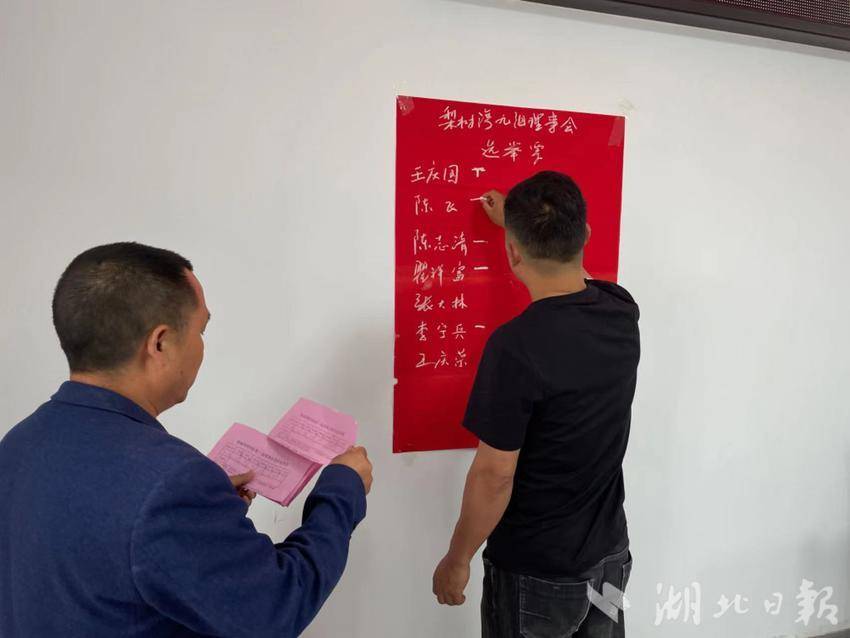 梨树湾九组理事会
选举票
王庆国
陈飞
陈志清
瞿祥富
张大林
李宁兵
王庆荣
湖北日报